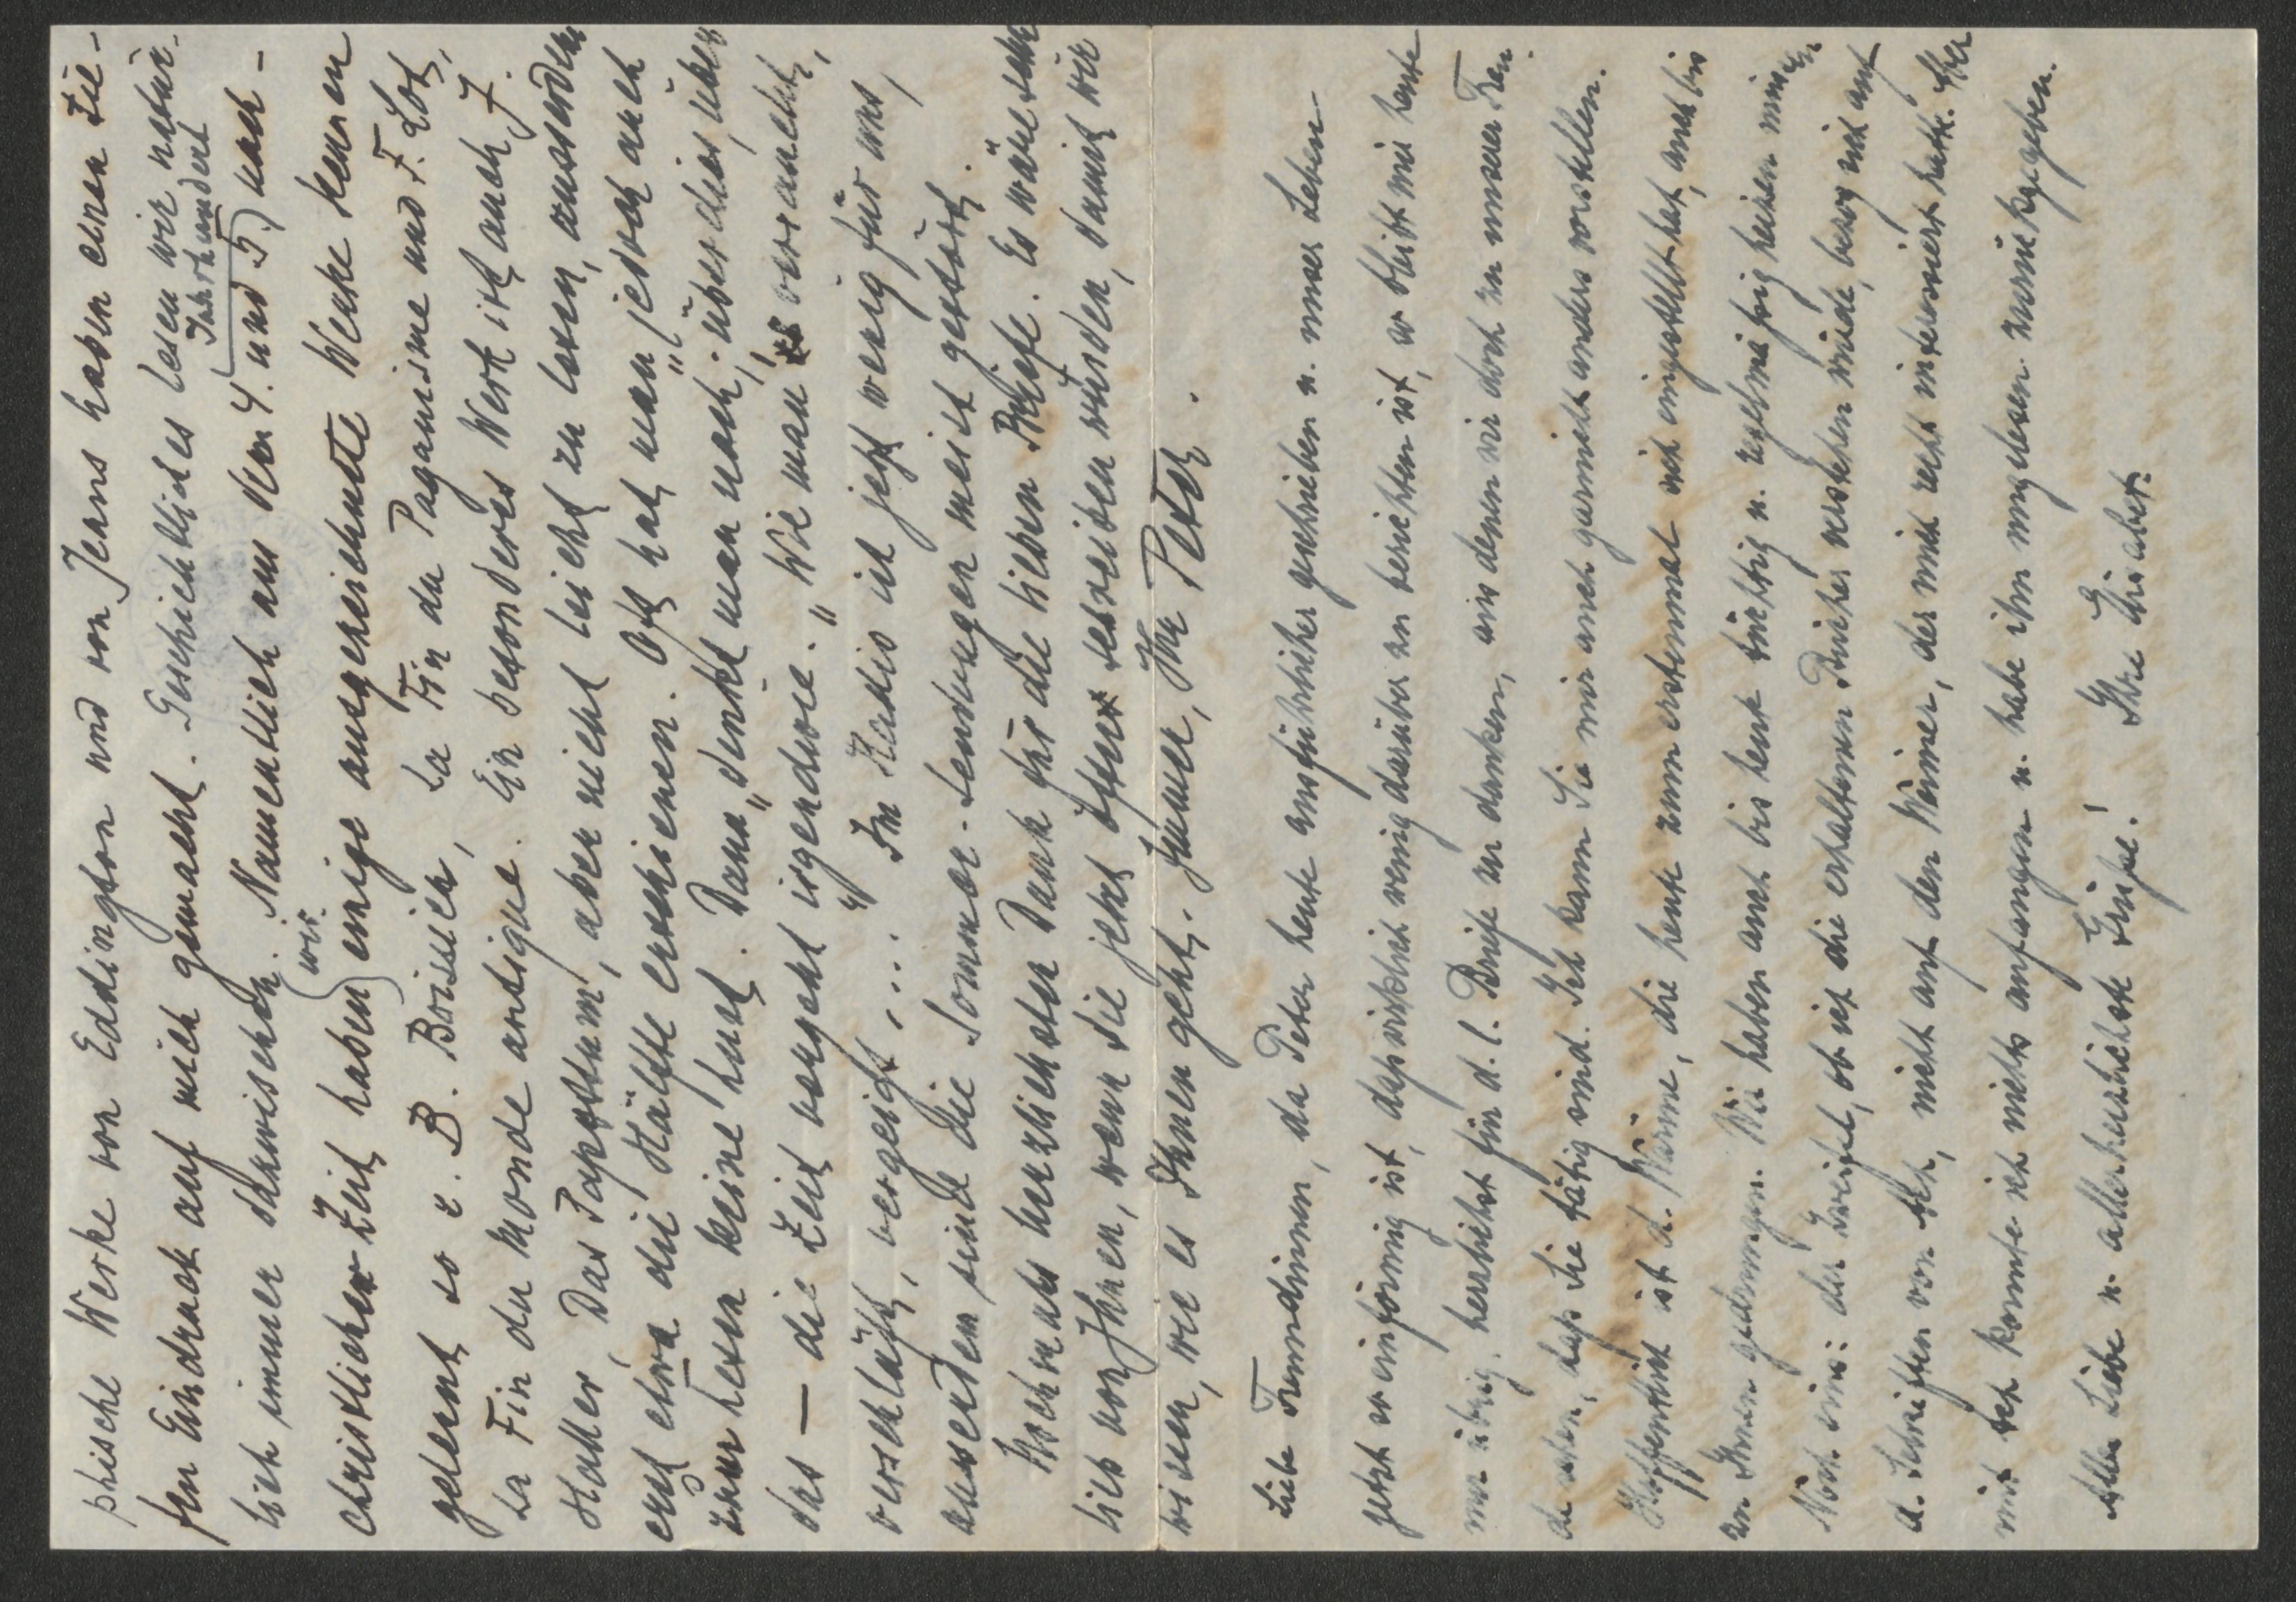 phische Werke von Eddington und von Jeans haben einen tie-
fen Eindruck auf mich gemacht. Geschichtliches lesen wir natür-
lich immer dazwischen. Namentlich aus dem 4. und 5. Jahrhundert nach-
christlicher Zeit haben wir einige ausgezeichnete Werke kennen
gelernt so z. B. Boissier, La Fin du Paganisme und F. Lot,
La Fin du Monde antique. Ein besonderes Werk ist auch J.
Haller, Das Papsttum, aber nicht leicht zu lesen, ausserdem
erst etwa die Hälfte erschienen. Oft hat man jedoch auch
zum Lesen keine Lust. Dann „denkt“ man nach, überdies, über
das — die Zeit vergeht irgendwie. „Wie man es verraucht,
verschläft, vergeigt ....“ Im Radio ist jetzt wenig für uns,
ausserdem sind die Sommer-Sendungen meist gestört.
Nochmals herzlichsten Dank für die lieben Briefe. Es wäre sehr
lieb von Ihnen, wenn Sie jetzt öfter schreiben würden, damit wir
wissen, wie es Ihnen geht. Immer, Ihr Peter.
Liebe Freundinnen, da Peter heute ausführlicher geschrieben u. unser Leben
jetzt so einförmig ist, dass wirklich wenig darüber zu berichten ist, so bleibt mir heute
nur übrig, herzlichst für d. l. Briefe zu danken, aus denen wir doch zu unserer Freu-
de sehen, dass Sie tätig sind. Ich kann Sie mir auch garnicht anders vorstellen.
Hoffentlich ist d. Wärme, die heute zum erstenmal sich eingestellt hat, auch bis
zu Ihnen gedrungen. Wir haben auch bis heute tüchtig u. regelmässig heizen müssen.
Noch eins: der Zweifel, ob ich die erhaltenen Bücher verstehen würde, bezog sich auf
d. Schriften von  , nicht auf den Weimer, der mich recht interessiert hatte. Aber
mit   konnte ich nichts anfangen u. habe ihn ungelesen zurückgegeben.
Alles Liebe u. allerherzlichste Grüsse! Ihre Elisabeth.